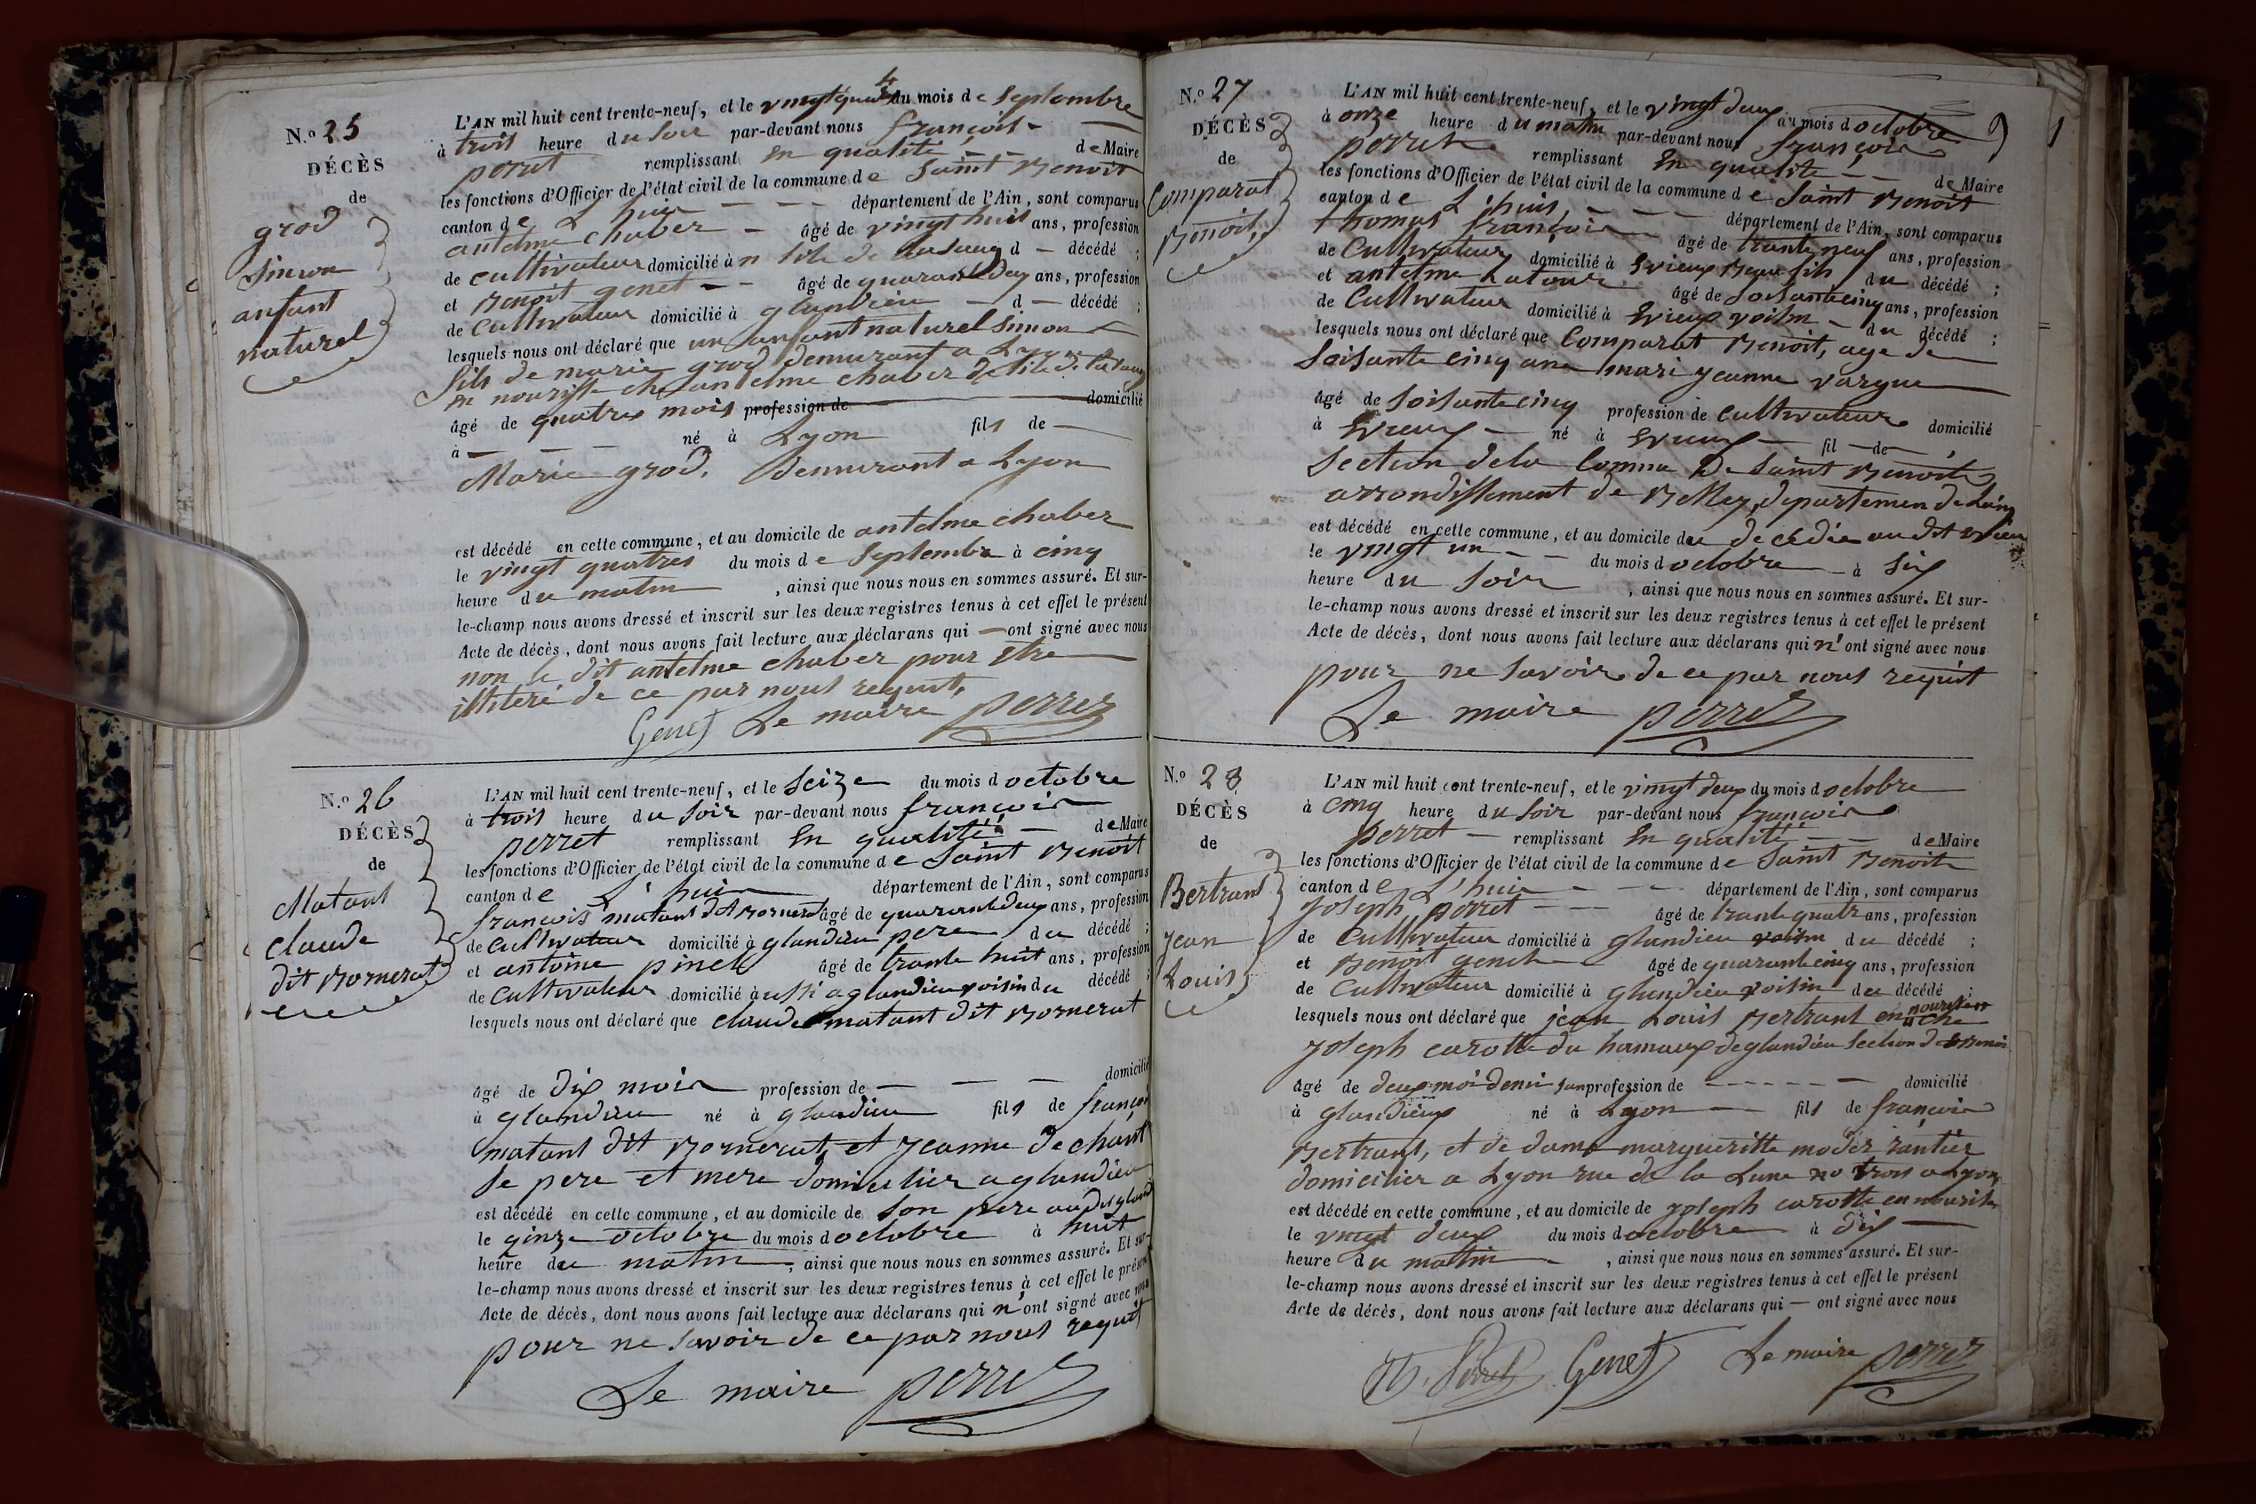 N.º 25
DÉCÈS
de
grod
Simon
anfant
naturel
L'AN mil huit cent trente-neuf, et le vingt quatre du mois de Septembre
à trois heure du soir par-devant nous françois
perret remplissant En qualité de Maire
les fonctions d'Officier de l'état civil de la commune de Saint Benoit
canton de L'huis département de l'Ain, sont comparus
antelme chaber âgé de vingt huit ans, profession
de cultivateur domicilié à d décédé ;
et Benoit genet âgé de quarante deux ans, profession
de Cultivateur domicilié à glandieu d décédé ;
lesquels nous ont déclaré que un anfant naturel Simon
fils de marie grod demurant a Lyon
en nourisse ché antelme chaber de
âgé de quatres mois profession de domicilié
à né à Lyon fils de
Marie grod. Demurant a Lyon
est décédé en cette commune, et au domicile de antelme chaber
le vingt quatres du mois de Septembre à cinq
heure du matin , ainsi que nous nous en sommes assuré. Et sur-
le-champ nous avons dressé et inscrit sur les deux registres tenus à cet effet le présent
Acte de décès, dont nous avons fait lecture aux déclarans qui ont signé avec nous
non le dit antelme chaber pour être
illiteré de ce par nous requit,
Genet Le maire perret
N.º 26
DÉCÈS
de
Matant
claude
dit Bornerat
L'AN mil huit cent trente-neuf, et le Seize du mois d octobre
à trois heure du Soir par-devant nous françois
perret remplissant En qualité de Maire
les fonctions d'Officier de l'état civil de la commune de Saint Benoit
canton de L'huis département de l'Ain, sont comparus
francois matant dit Bornerat âgé de quarante deux ans, profession
de Cultivateur domicilié à glandieu pere du décédé ;
et antoine pinel âgé de trante huit ans, profession
de Cultivateur domicilié aussi a glandieu voisin du décédé ;
lesquels nous ont déclaré que claude matant dit Bornerat
âgé de dix mois profession de domicilié
à glandieu né à glandieu fils de françois
matant dit Bornerat, et Jeanne Dechant
Se pere et mere domicilier a glandieu
est décédé en cette commune, et au domicile de Son pere
le qinze octobre du mois d octobre à huit
heure du matin , ainsi que nous nous en sommes assuré. Et sur-
le-champ nous avons dressé et inscrit sur les deux registres tenus à cet effet le présent
Acte de décès, dont nous avons fait lecture aux déclarans qui n'ont signé avec nous
pour ne Savoir de ce par nous requit
Le maire perret
N.º 27
DÉCÈS
de
Comparat
Benoit
L'AN mil huit cent trente-neuf, et le vingt deux du mois d octobre
à onze heure du matin par-devant nous françois
perret remplissant En qualité de Maire
les fonctions d'Officier de l'état civil de la commune de Saint Benoit
canton de L'huis département de l'Ain, sont comparus
thomas françois âgé de trante neuf ans, profession
de Cultivateur domicilié à Evieux Beau fils du décédé ;
et antelme Latour âgé de Soisante cinq ans, profession
de Cultivateur domicilié à Evieux voisin du décédé ;
lesquels nous ont déclaré que Comparat Benoit, age de
Soisante cinq ans mari yeanne vargue
âgé de Soisante cinq profession de Cultivateur domicilié
à Evieux né à Evieux fil de
Section dela Comme De Saint Benoit
arrondissement de Belley, departemen de Lain
est décédé en cette commune, et au domicile du decédé au dit Evieu
le vingt un du mois d octobre à Six
heure du Soir , ainsi que nous nous en sommes assuré. Et sur-
le-champ nous avons dressé et inscrit sur les deux registres tenus à cet effet le présent
Acte de décès, dont nous avons fait lecture aux déclarans qui n'ont signé avec nous
pour ne Savoir de ce par nous requit
Le maire perret
N.º 28
DÉCÈS
de
Bertrant
jean
Louis
L'AN mil huit cent trente-neuf, et le vingt deux du mois d octobre
à cinq heure du Soir par-devant nous françois
perret remplissant En qualité de Maire
les fonctions d'Officier de l'état civil de la commune de Saint Benoit
canton de L'huis département de l'Ain, sont comparus
Joseph perret âgé de trante quatre ans, profession
de Cultivateur domicilié à Glandieu voisin du décédé ;
et Benoit genet âgé de quarante cinq ans, profession
de Cultivateur domicilié à glandieu voisin du décédé ;
lesquels nous ont déclaré que jean Louis Bertrant en nourisse ché
Joseph carotte du hamaux de glandieu Section de
âgé de deux moi demi san profession de domicilié
à glandieux né à Lyon fils de francois
Bertrant, et de dame margueritte moder rantier
domicilier a Lyon rue de la Lune no trois a Lyon
est décédé en cette commune, et au domicile de joseph carotte en
le vingt deux du mois d octobre à dix
heure du matin , ainsi que nous nous en sommes assuré. Et sur-
le-champ nous avons dressé et inscrit sur les deux registres tenus à cet effet le présent
Acte de décès, dont nous avons fait lecture aux déclarans qui ont signé avec nous
Perret Genet Le maire perret